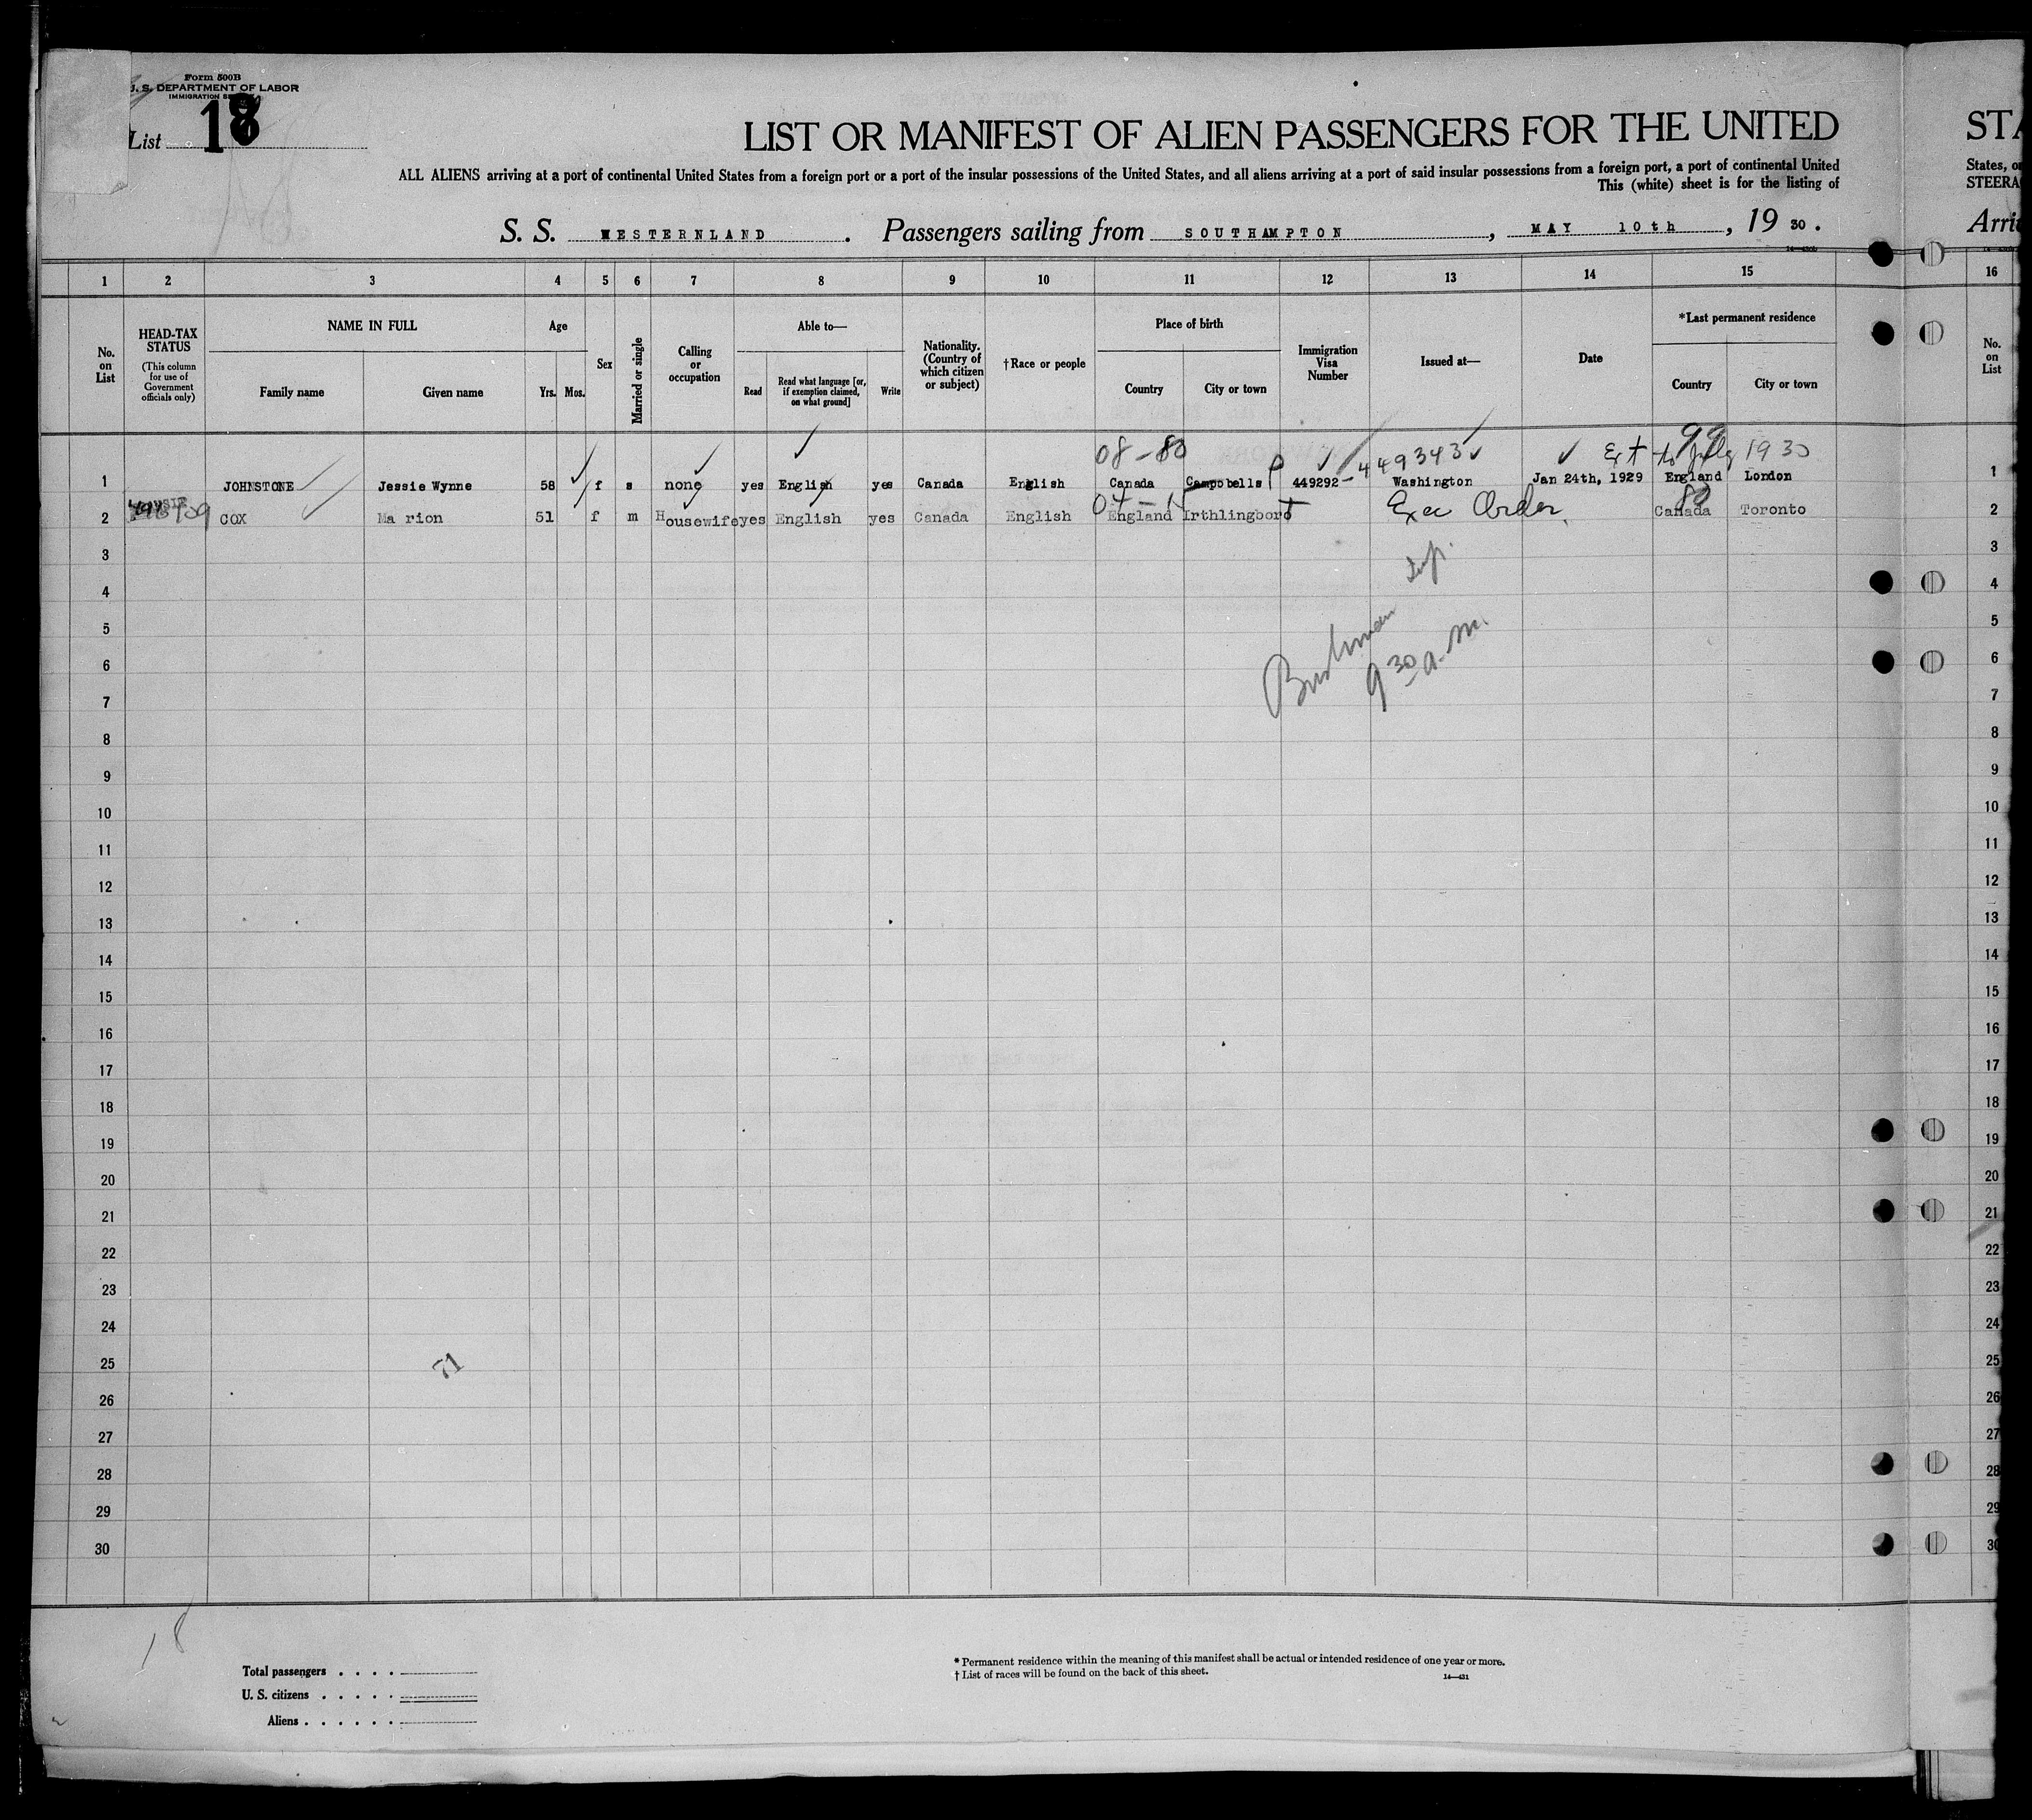 Form 500B
U. S. DEPARTMENT OF LABOR
IMMIGRATION
List 18
LIST OR MANIFEST OF ALIEN PASSENGERS FOR THE UNITED
STA
ALL ALIENS arriving at a port of continental United States from a foreign port or a port of the insular possessions of the United States, and all aliens arriving at a port of said insular possessions from a foreign port, a port of continental United
States, or
This (white) sheet is for the listing of
STEERA
S. S. WESTERNLAND . Passengers sailing from SOUTHAMPTON , MAY 10th , 19 30 .
Arri
1 2 3 4 5 6 7 8 9 10 11 12 13 14 15 16
No. on List
HEAD-TAX STATUS
(This column for use of Government officials only)
NAME IN FULL
Family name Given name
Age
Yrs. Mos.
Sex
Married or single
Calling or occupation
Able to—
Read
Read what language [or, if exemption claimed, on what ground]
Write
Nationality. (Country of which citizen or subject)
†Race or people
Place of birth
Country City or town
Immigration Visa Number
Issued at—
Date
*Last permanent residence
Country City or town
No. on List
08-80 449343 Ext to July 1930
99
1 JOHNSTONE Jessie Wynne 58 f s none yes English yes Canada English Canada Campobells 449292 Washington Jan 24th, 1929 England London 1
2 COX Ma rion 51 f m Housewife yes English yes Canada English England Irthlingboro Exec Order Canada Toronto 2
3 3
4 4
5 5
6 6
7 7
8 8
9 9
10 10
11 11
12 12
13 13
14 14
15 15
16 16
17 17
18 18
19 19
20 20
21 21
22 22
23 23
24 24
25 25
26 26
27 27
28 28
29 29
30 30
9 30 a.m.
71
18
Total passengers . . . .
U. S. citizens . . . . .
Aliens . . . . . .
* Permanent residence within the meaning of this manifest shall be actual or intended residence of one year or more.
† List of races will be found on the back of this sheet.
14—431